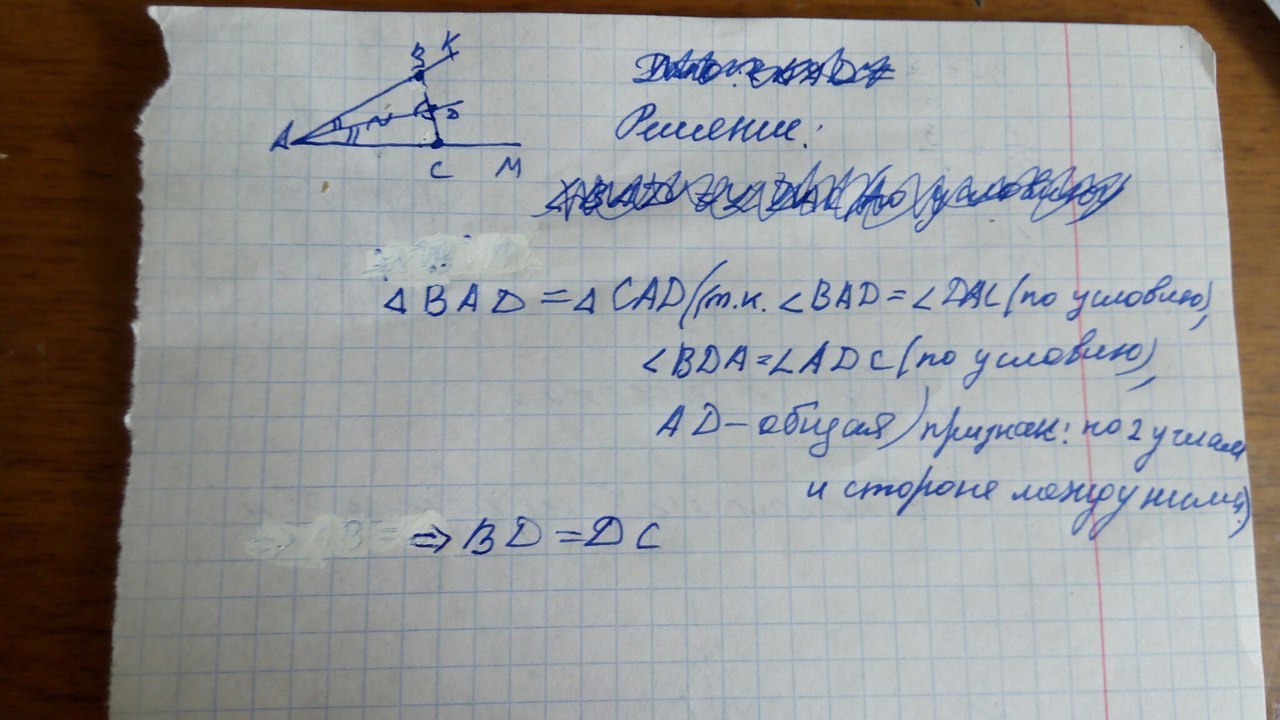 В K
А D
С М
Решение:
∆ BAD = ∆ CAD (т.к. ∠BAD = ∠DAC (по условию),
∠BDA = ∠ADC (по условию),
AD – общая) признак: по 2 углам
и стороне между ними)
⇒ BD = DC